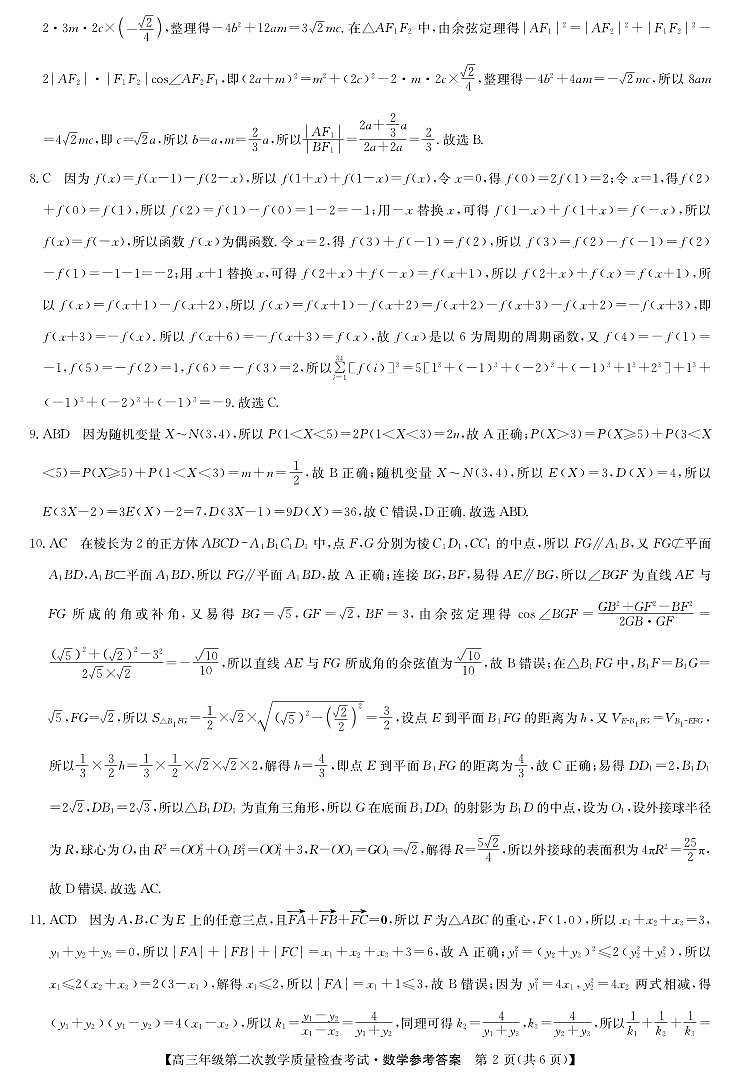 2·3m·2c×(-√2/4),整理得-4b²+12am=3√2mc.在△AF₁F₂中,由余弦定理得|AF₁|²=|AF₂|²+|F₁F₂|²-
2|AF₂|·|F₁F₂|cos∠AF₂F₁,即(2a+m)²=m²+(2c)²-2·m·2c×√2/4,整理得-4b²+4am=-√2mc,所以8am
=4√2mc,即c=√2a,所以b=a,m=2/3a,所以|AF₁|/|BF₁|=(2a+2/3a)/(2a+2a)=2/3.故选B.
8.C 因为f(x)=f(x-1)-f(2-x),所以f(1+x)+f(1-x)=f(x),令x=0,得f(0)=2f(1)=2;令x=1,得f(2)
+f(0)=f(1),所以f(2)=f(1)-f(0)=1-2=-1;用-x替换x,可得f(1-x)+f(1+x)=f(-x),所以
f(x)=f(-x),所以函数f(x)为偶函数.令x=2,得f(3)+f(-1)=f(2),所以f(3)=f(2)-f(-1)=f(2)
-f(1)=-1-1=-2;用x+1替换x,可得f(2+x)+f(-x)=f(x+1),所以f(2+x)+f(x)=f(x+1),所
以f(x)=f(x+1)-f(x+2),所以f(x)=f(x+1)-f(x+2)=f(x+2)-f(x+3)-f(x+2)=-f(x+3),即
f(x+3)=-f(x).所以f(x+6)=-f(x+3)=f(x),故f(x)是以6为周期的周期函数,又f(4)=-f(1)=
-1,f(5)=-f(2)=1,f(6)=-f(3)=2,所以∑[f(i)]³=5[1³+(-1)³+(-2)³+(-1)³+1³+2³]+1³+
(-1)³+(-2)³+(-1)³=-9.故选C.
9.ABD 因为随机变量X~N(3,4),所以P(1<X<5)=2P(1<X<3)=2n,故A正确;P(X>3)=P(X≥5)+P(3<X
<5)=P(X≥5)+P(1<X<3)=m+n=1/2,故B正确;随机变量X~N(3,4),所以E(X)=3,D(X)=4,所以
E(3X-2)=3E(X)-2=7,D(3X-1)=9D(X)=36,故C错误,D正确.故选ABD.
10.AC 在棱长为2的正方体ABCD-A₁B₁C₁D₁中,点F,G分别为棱C₁D₁,CC₁的中点,所以FG∥A₁B,又FG⊄平面
A₁BD,A₁B⊂平面A₁BD,所以FG∥平面A₁BD,故A正确;连接BG,BF,易得AE∥BG,所以∠BGF为直线AE与
FG所成的角或补角,又易得BG=√5,GF=√2,BF=3,由余弦定理得cos∠BGF=(GB²+GF²-BF²)/(2GB·GF)=
((√5)²+(√2)²-3²)/(2√5×√2)=-√10/10,所以直线AE与FG所成角的余弦值为√10/10,故B错误;在△B₁FG中,B₁F=B₁G=
√5,FG=√2,所以S△B₁FG=1/2×√2×√((√5)²-(√2/2)²)=3/2,设点E到平面B₁FG的距离为h,又V_E-B₁FG=V_B₁-EFG,
所以1/3×3/2h=1/3×1/2×√2×√2×2,解得h=4/3,即点E到平面B₁FG的距离为4/3,故C正确;易得DD₁=2,B₁D₁
=2√2,DB₁=2√3,所以△B₁DD₁为直角三角形,所以G在底面B₁DD₁的射影为B₁D的中点,设为O₁,设外接球半径
为R,球心为O,由R²=OO₁²+O₁B₁²=OO₁²+3,R-OO₁=GO₁=√2,解得R=5√2/4,所以外接球的表面积为4πR²=25/2π,
故D错误.故选AC.
11.ACD 因为A,B,C为E上的任意三点,且FA→+FB→+FC→=0,所以F为△ABC的重心,F(1,0),所以x₁+x₂+x₃=3,
y₁+y₂+y₃=0,所以|FA|+|FB|+|FC|=x₁+x₂+x₃+3=6,故A正确;y₁²=(y₂+y₃)²≤2(y₂²+y₃²),所以
x₁≤2(x₂+x₃)=2(3-x₁),解得x₁≤2,所以|FA|=x₁+1≤3,故B错误;因为y₁²=4x₁,y₂²=4x₂两式相减,得
(y₁+y₂)(y₁-y₂)=4(x₁-x₂),所以k₁=(y₁-y₂)/(x₁-x₂)=4/(y₁+y₂),同理可得k₂=4/(y₁+y₃),k₃=4/(y₂+y₃),所以1/k₁+1/k₂+1/k₃=
【高三年级第二次教学质量检查考试·数学参考答案 第2页(共6页)】